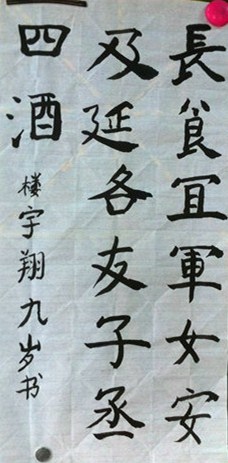 長食宜軍女安
及延各友子丞
四酒
楼宇翔九岁书